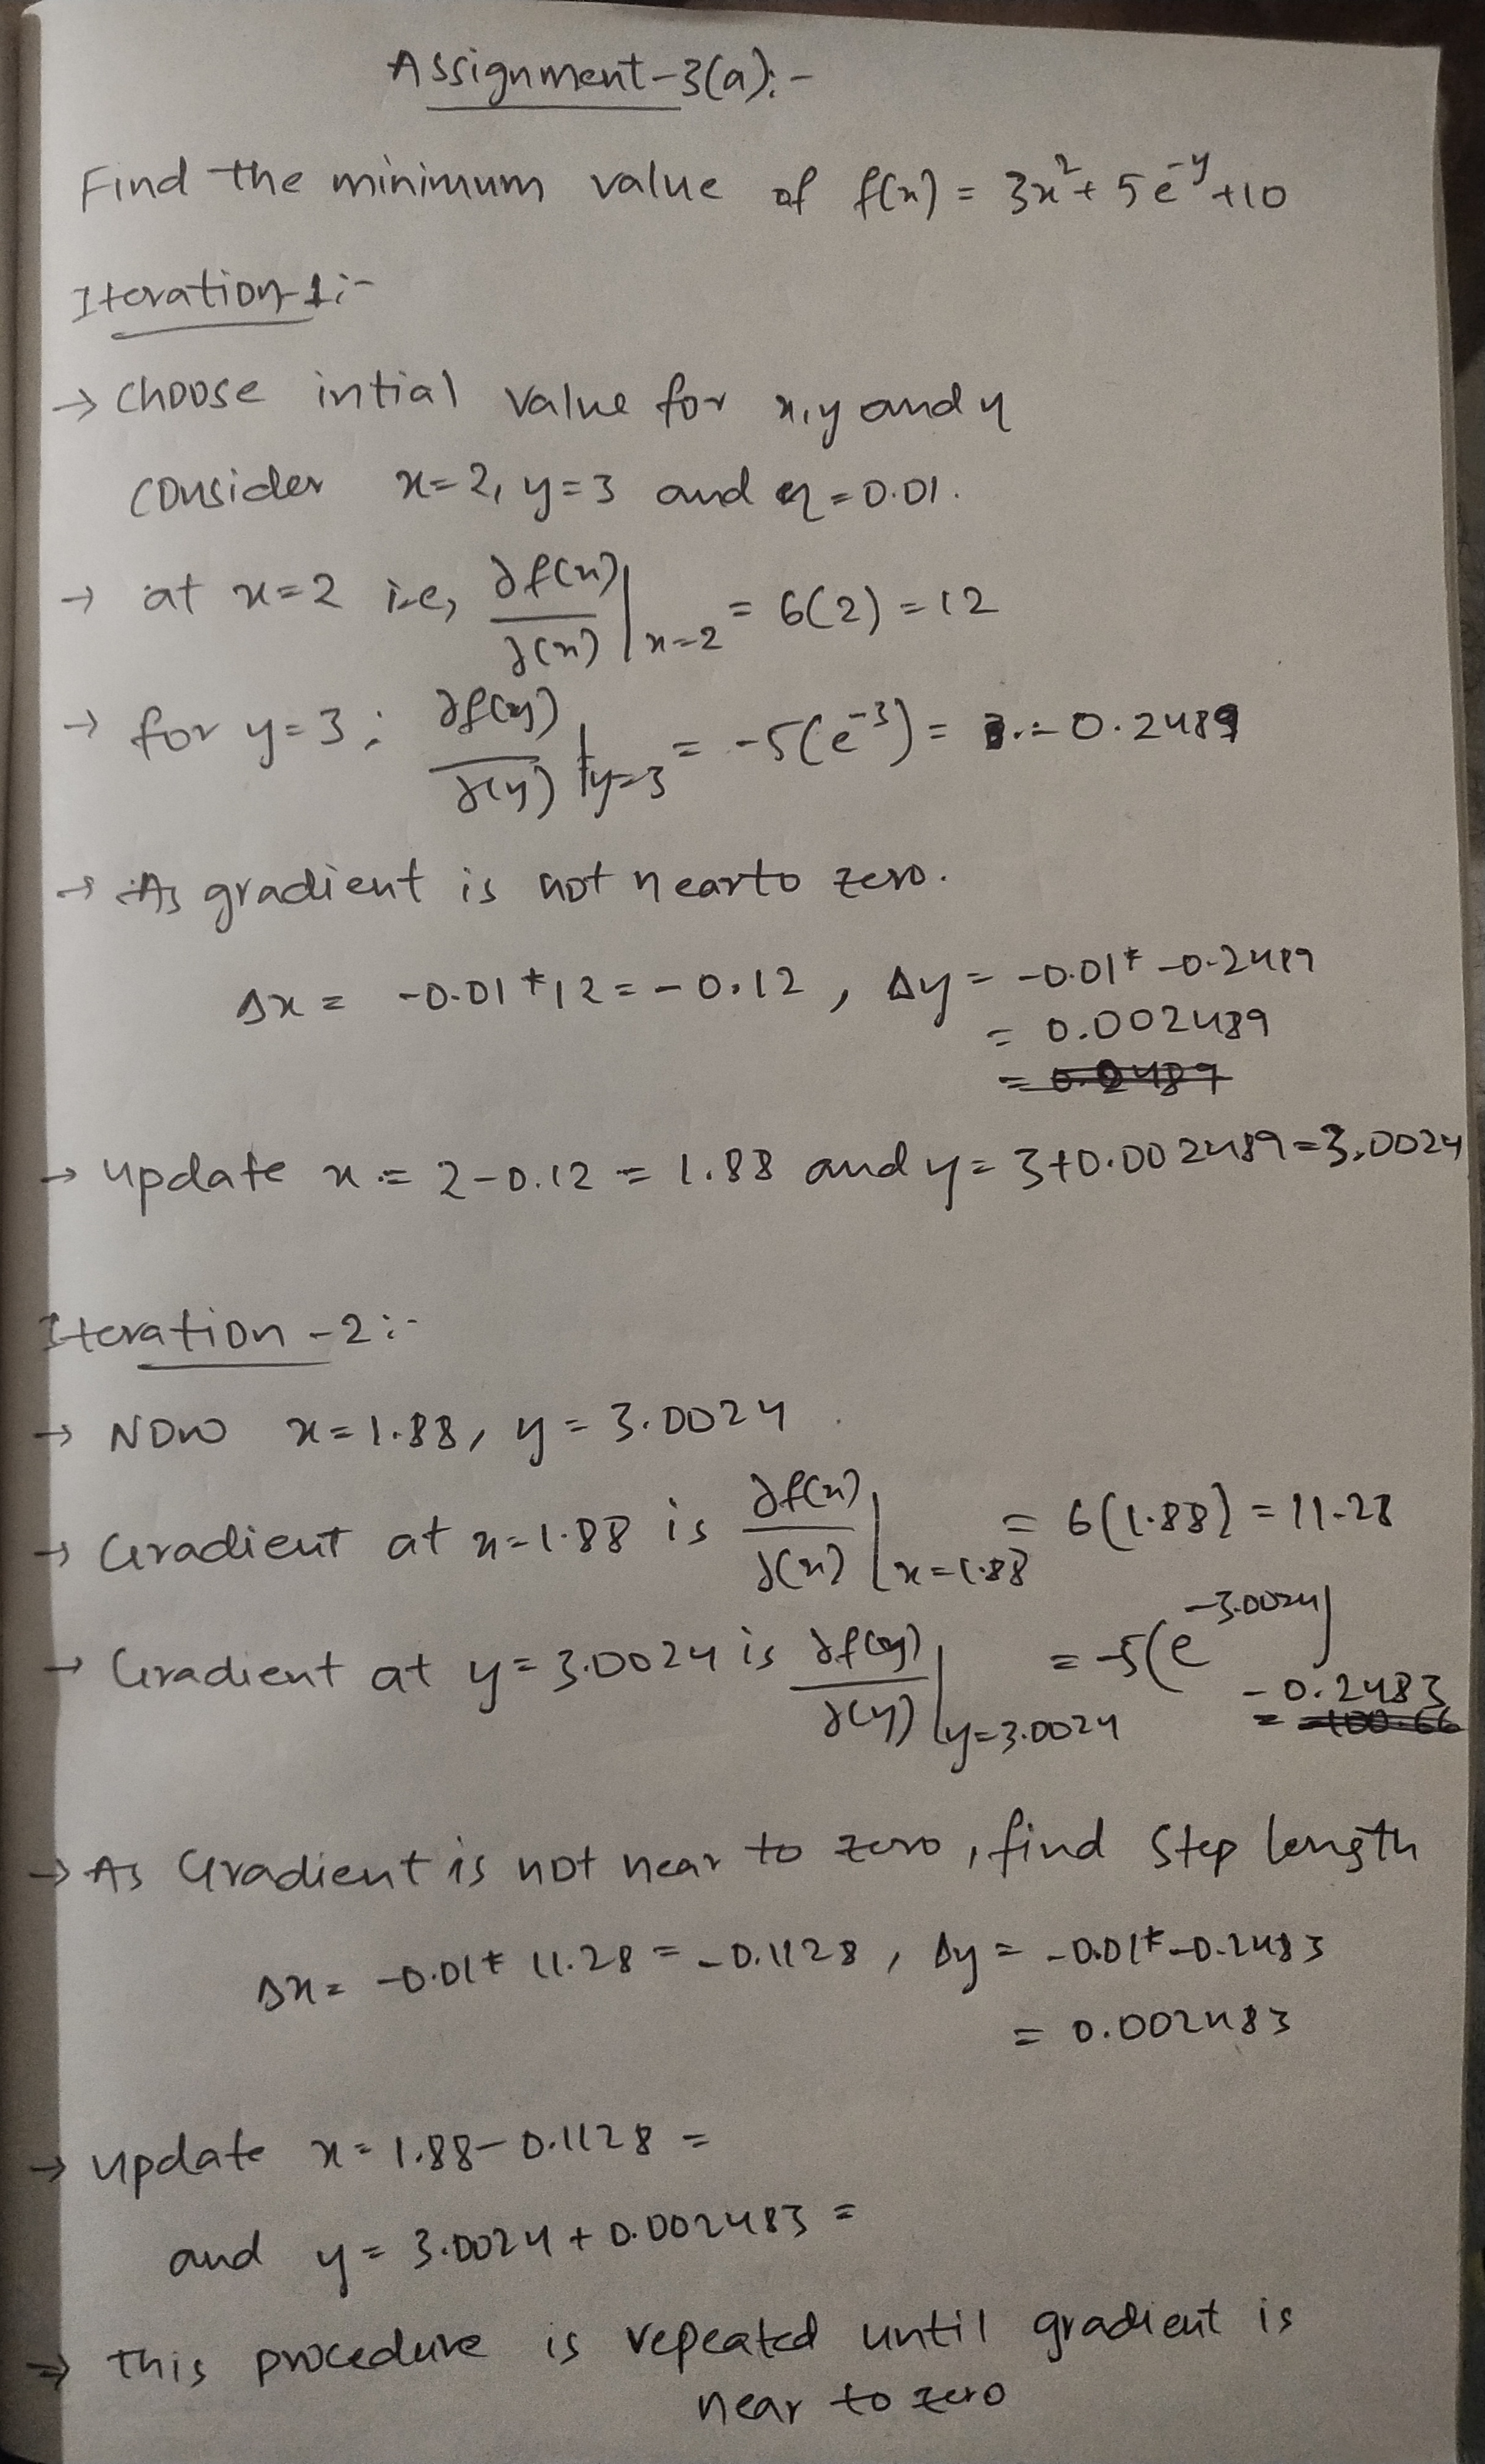 Assignment-3(a):-
Find the minimum value of f(x) = 3x²+ 5e⁻ʸ+10
Iteration-1:-
→ choose intial value for x,y and η
consider x=2, y=3 and η=0.01.
→ at x=2 i.e, ∂f(x)/∂(x) |x=2 = 6(2) = 12
→ for y=3; ∂f(y)/∂(y) |y=3 = -5(e⁻³) = -0.2489
→ As gradient is not near to zero.
Δx = -0.01*12 = -0.12, Δy = -0.01*-0.2489
= 0.002489
→ update x = 2-0.12 = 1.88 and y = 3+0.002489=3.0024
Iteration -2:-
→ NOW x=1.88, y = 3.0024
→ Gradient at x=1.88 is ∂f(x)/∂(x) |x=1.88 = 6(1.88) = 11.28
→ Gradient at y=3.0024 is ∂f(y)/∂(y) |y=3.0024 = -5(e^-3.0024)
-0.2483
→ As Gradient is not near to zero, find step length
Δx = -0.01* 11.28 = -0.1128, Δy = -0.01*-0.2483
= 0.002483
→ update x = 1.88-0.1128 =
and y = 3.0024 + 0.002483 =
⇒ This procedure is repeated until gradient is
near to zero